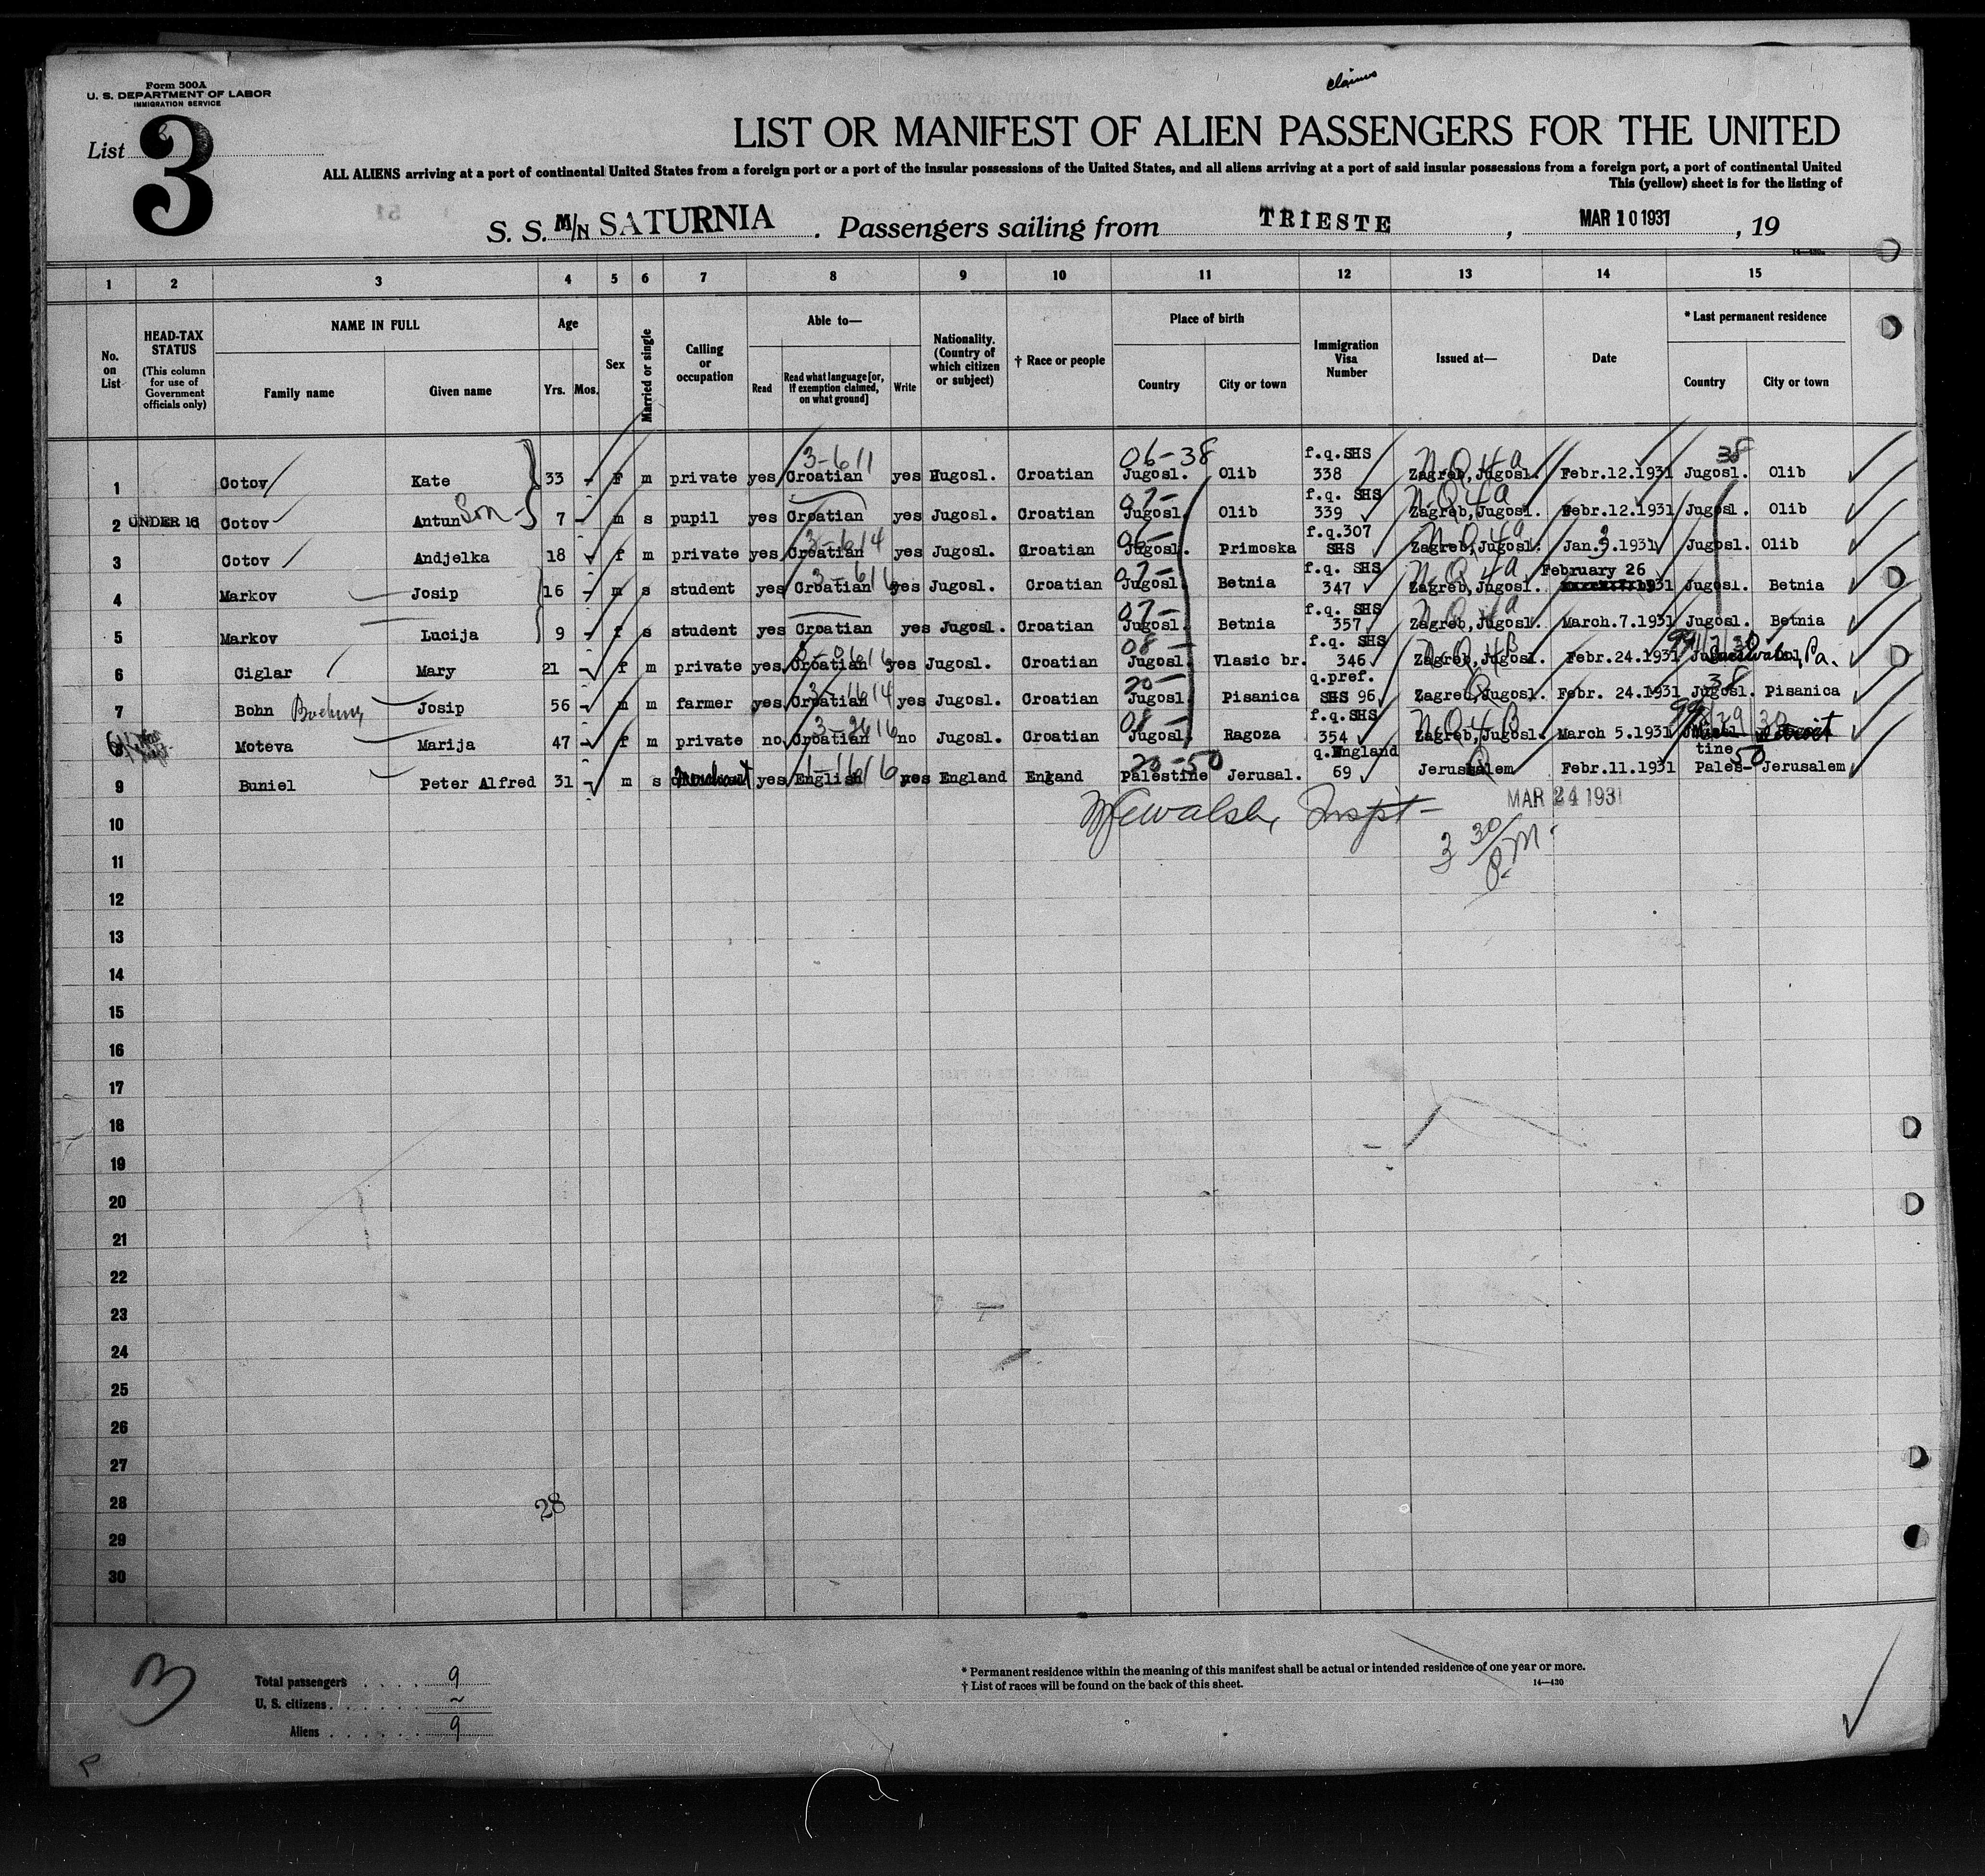 claims
Form 500A
U. S. DEPARTMENT OF LABOR
IMMIGRATION SERVICE
List 3
LIST OR MANIFEST OF ALIEN PASSENGERS FOR THE UNITED
ALL ALIENS arriving at a port of continental United States from a foreign port or a port of the insular possessions of the United States, and all aliens arriving at a port of said insular possessions from a foreign port, a port of continental United
This (yellow) sheet is for the listing of
S. S. M/N SATURNIA . Passengers sailing from TRIESTE , MAR 10 1931 , 19
14—430a
1 2 3 4 5 6 7 8 9 10 11 12 13 14 15
No. on List
HEAD-TAX STATUS
(This column for use of Government officials only)
NAME IN FULL
Family name Given name
Age
Yrs. Mos.
Sex
Married or single
Calling or occupation
Able to—
Read Read what language [or, if exemption claimed, on what ground] Write
Nationality. (Country of which citizen or subject)
† Race or people
Place of birth
Country City or town
Immigration Visa Number
Issued at—
Date
* Last permanent residence
Country City or town
3-611 06-38 f.q.SHS N.Q4a 38
1 Cotov Kate 33 - F m private yes Croatian yes Hugosl. Croatian Jugosl. Olib 338 Zagreb,Jugosl. Febr.12.1931 Jugosl. Olib
07- f.q. SHS N.Q4a
2 UNDER 16 Cotov Antun Son 7 - m s pupil yes Croatian yes Jugosl. Croatian Jugosl. Olib 339 Zagreb,Jugosl. Febr.12.1931 Jugosl. Olib
3-614 06- f.q.307 N.Q4a
3 Cotov Andjelka 18 f m private yes Croatian yes Jugosl. Croatian Jugosl. Primoska SHS Zagreb,Jugosl. Jan.3.1931 Jugosl. Olib
3-616 07- f.q. SHS N.Q4a February 26
4 Markov Josip 16 - m s student yes Croatian yes Jugosl. Croatian Jugosl. Betnia 347 Zagreb,Jugosl. 1931 Jugosl. Betnia
07- f.q. SHS N.Q4a
5 Markov Lucija 9 - f s student yes Croatian yes Jugosl. Croatian Jugosl. Betnia 357 Zagreb,Jugosl. March.7.1931 Jugosl. Betnia
08- f.q. SHS N.Q4B
6 Ciglar Mary 21 - f m private yes Croatian yes Jugosl. Croatian Jugosl. Vlasic br. 346 Zagreb,Jugosl. Febr.24.1931 Pa.
3-1614 20- q.pref. Q 38
7 Bohn Josip 56 - m m farmer yes Croatian yes Jugosl. Croatian Jugosl. Pisanica SHS 96 Zagreb,Jugosl. Febr. 24.1931 Jugosl. Pisanica
3-2616 08- f.q.SHS N.Q4B
8 Moteva Marija 47 - f m private no Croatian no Jugosl. Croatian Jugosl. Ragoza 354 Zagreb,Jugosl. March 5.1931 Detroit
1-1616 20-50 q.England Q tine 50
9 Buniel Peter Alfred 31 - m s Merchant yes English yes England Engand Palestine Jerusal. 69 Jerusalem Febr.11.1931 Pales- Jerusalem
MAR 24 1931
10 Walsh, Inspt
3 30/P.M.
11
12
13
14
15
16
17
18
19
20
21
22
23
24
25
26
27
28 28
29
30
3
Total passengers . . . . . 9
U. S. citizens . . . . . . ~
Aliens . . . . . . 9
* Permanent residence within the meaning of this manifest shall be actual or intended residence of one year or more.
† List of races will be found on the back of this sheet.
14—430